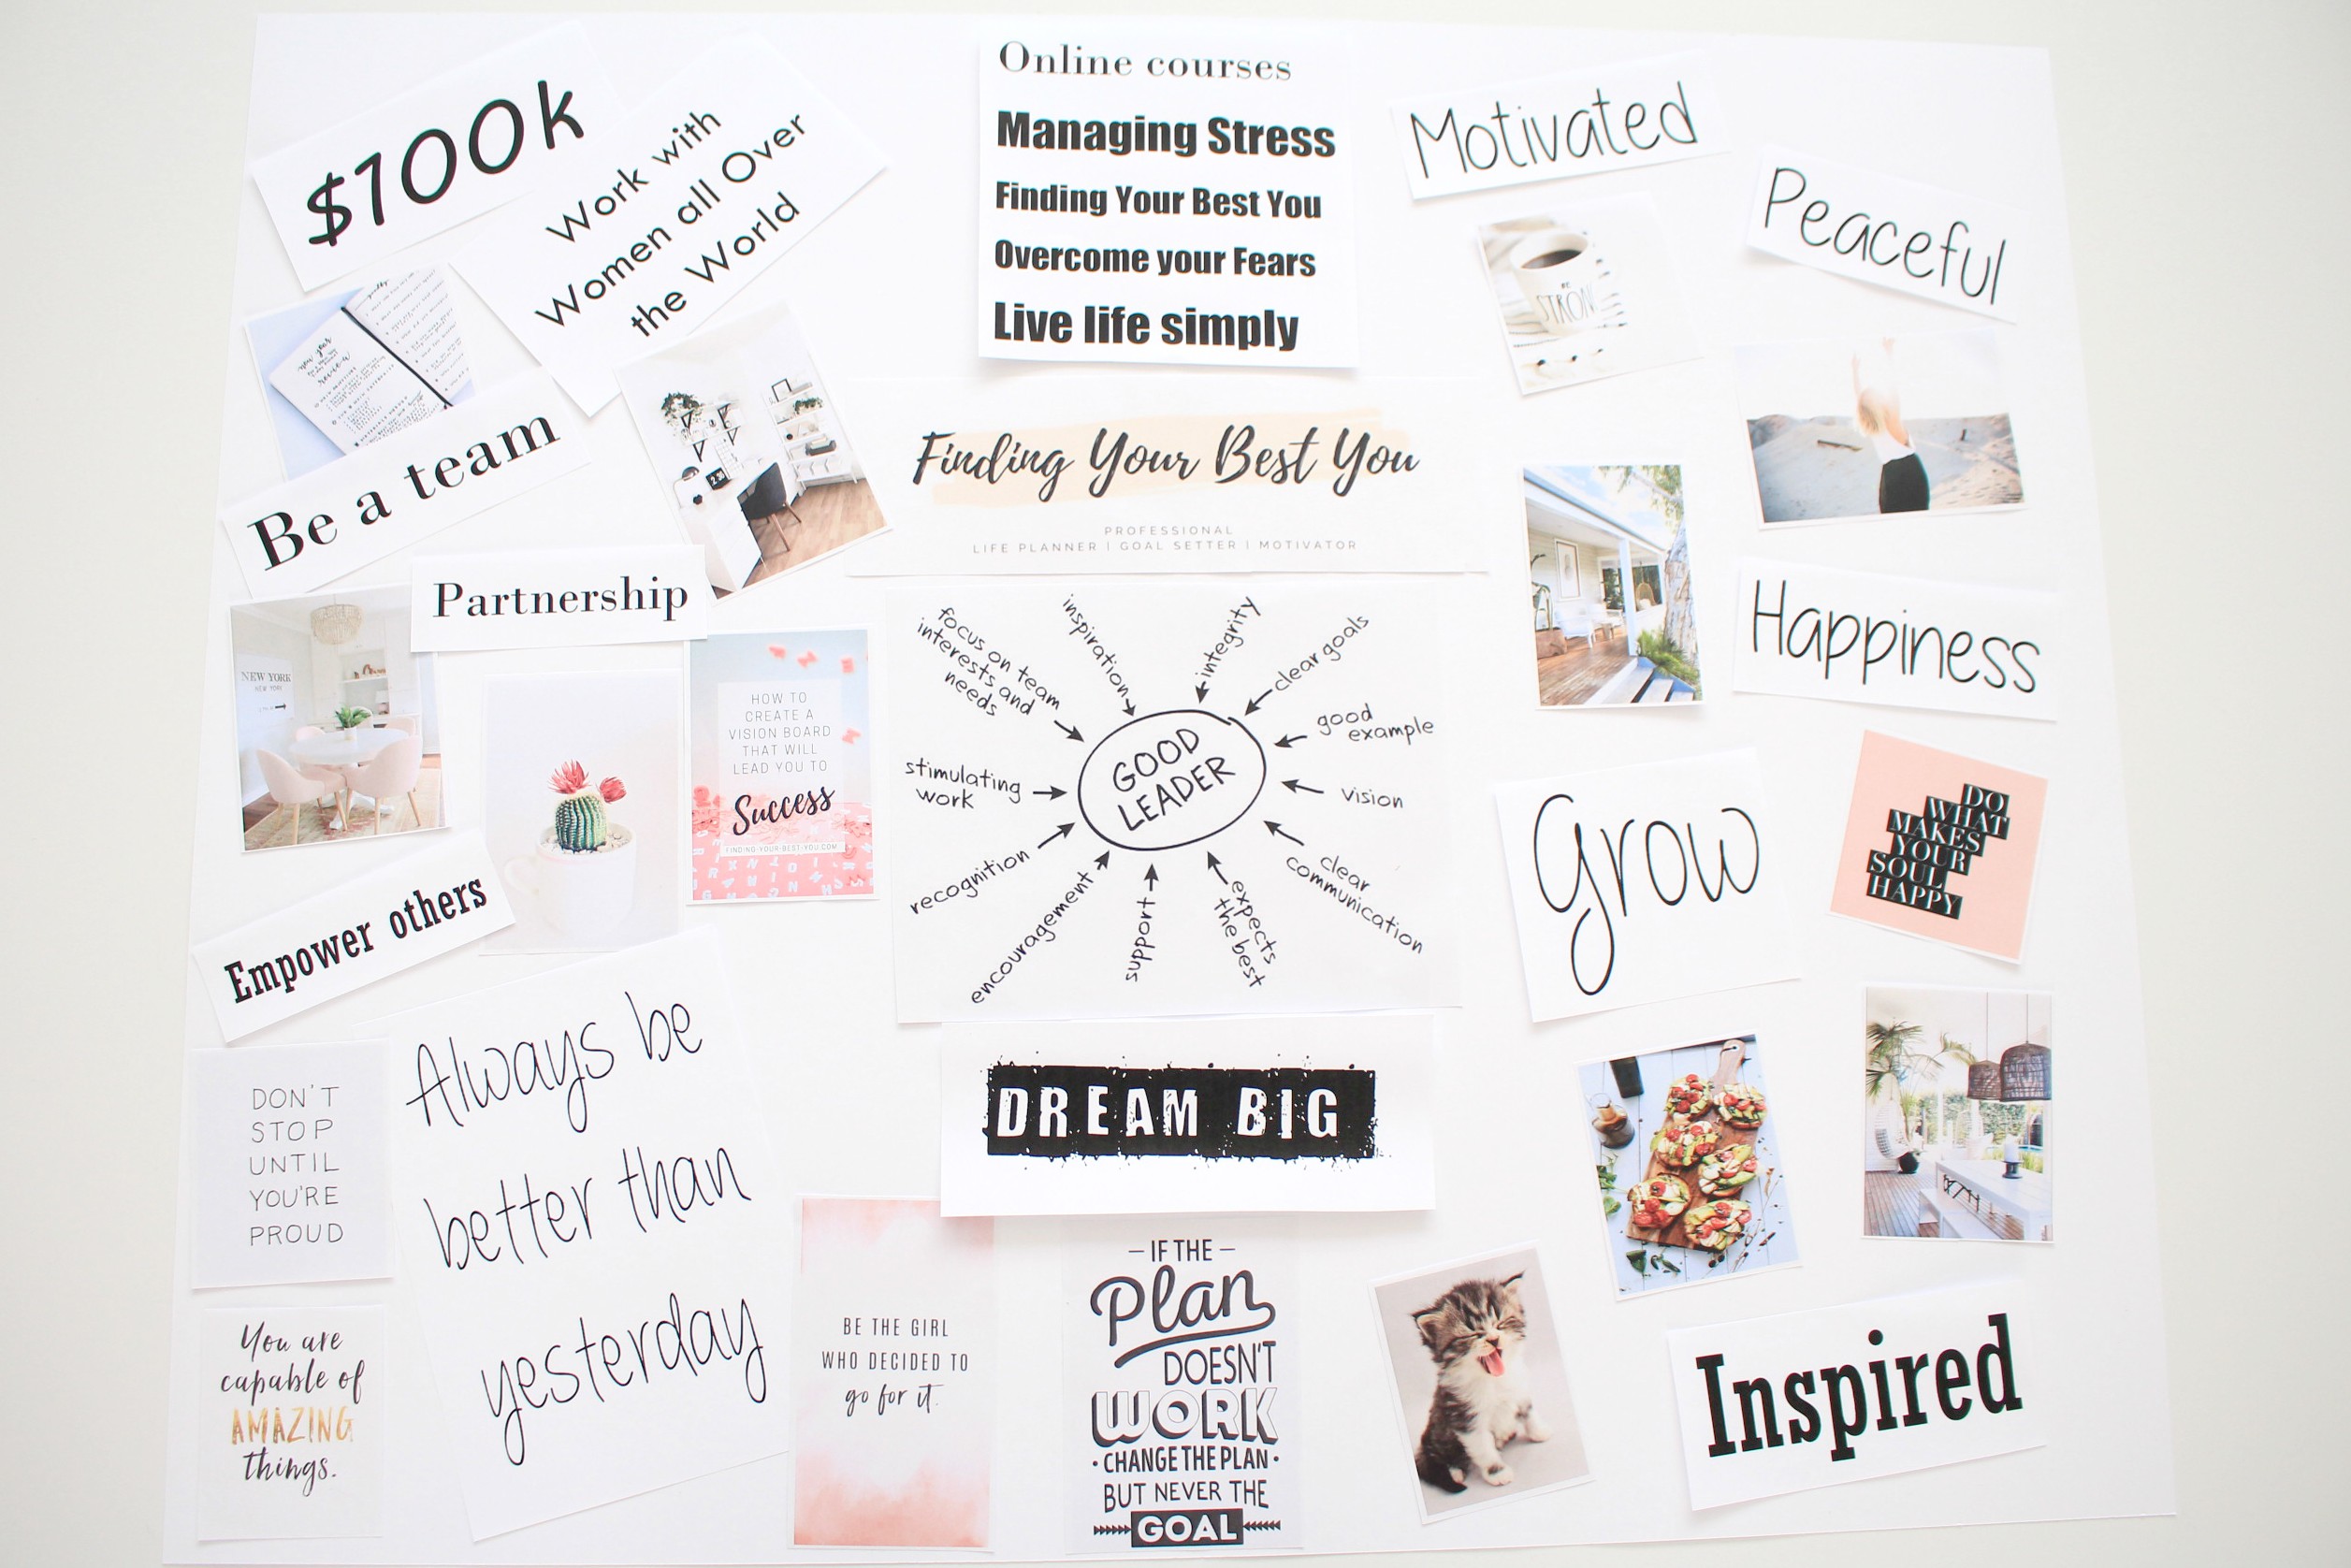 $100k
Work with
Women all Over
the World
Online courses
Managing Stress
Finding Your Best You
Overcome your Fears
Live life simply
Motivated
Peaceful
BE
STRONG
Be a team
Finding Your Best You
PROFESSIONAL
LIFE PLANNER | GOAL SETTER | MOTIVATOR
Partnership
NEW YORK
NEW YORK
HOW TO
CREATE A
VISION BOARD
THAT WILL
LEAD YOU TO
Success
FINDING-YOUR-BEST-YOU.COM
GOOD
LEADER
focus on team
interests and
needs
inspiration
integrity
clear goals
good
example
vision
clear
communication
expects
the best
support
encouragement
recognition
stimulating
work
Happiness
Grow
DO
WHAT
MAKES
YOUR
SOUL
HAPPY
Empower others
Always be
better than
yesterday
DON'T
STOP
UNTIL
YOU'RE
PROUD
You are
capable of
AMAZING
things.
DREAM BIG
BE THE GIRL
WHO DECIDED TO
go for it.
– IF THE –
Plan
DOESN'T
WORK
• CHANGE THE PLAN •
BUT NEVER THE
GOAL
Inspired